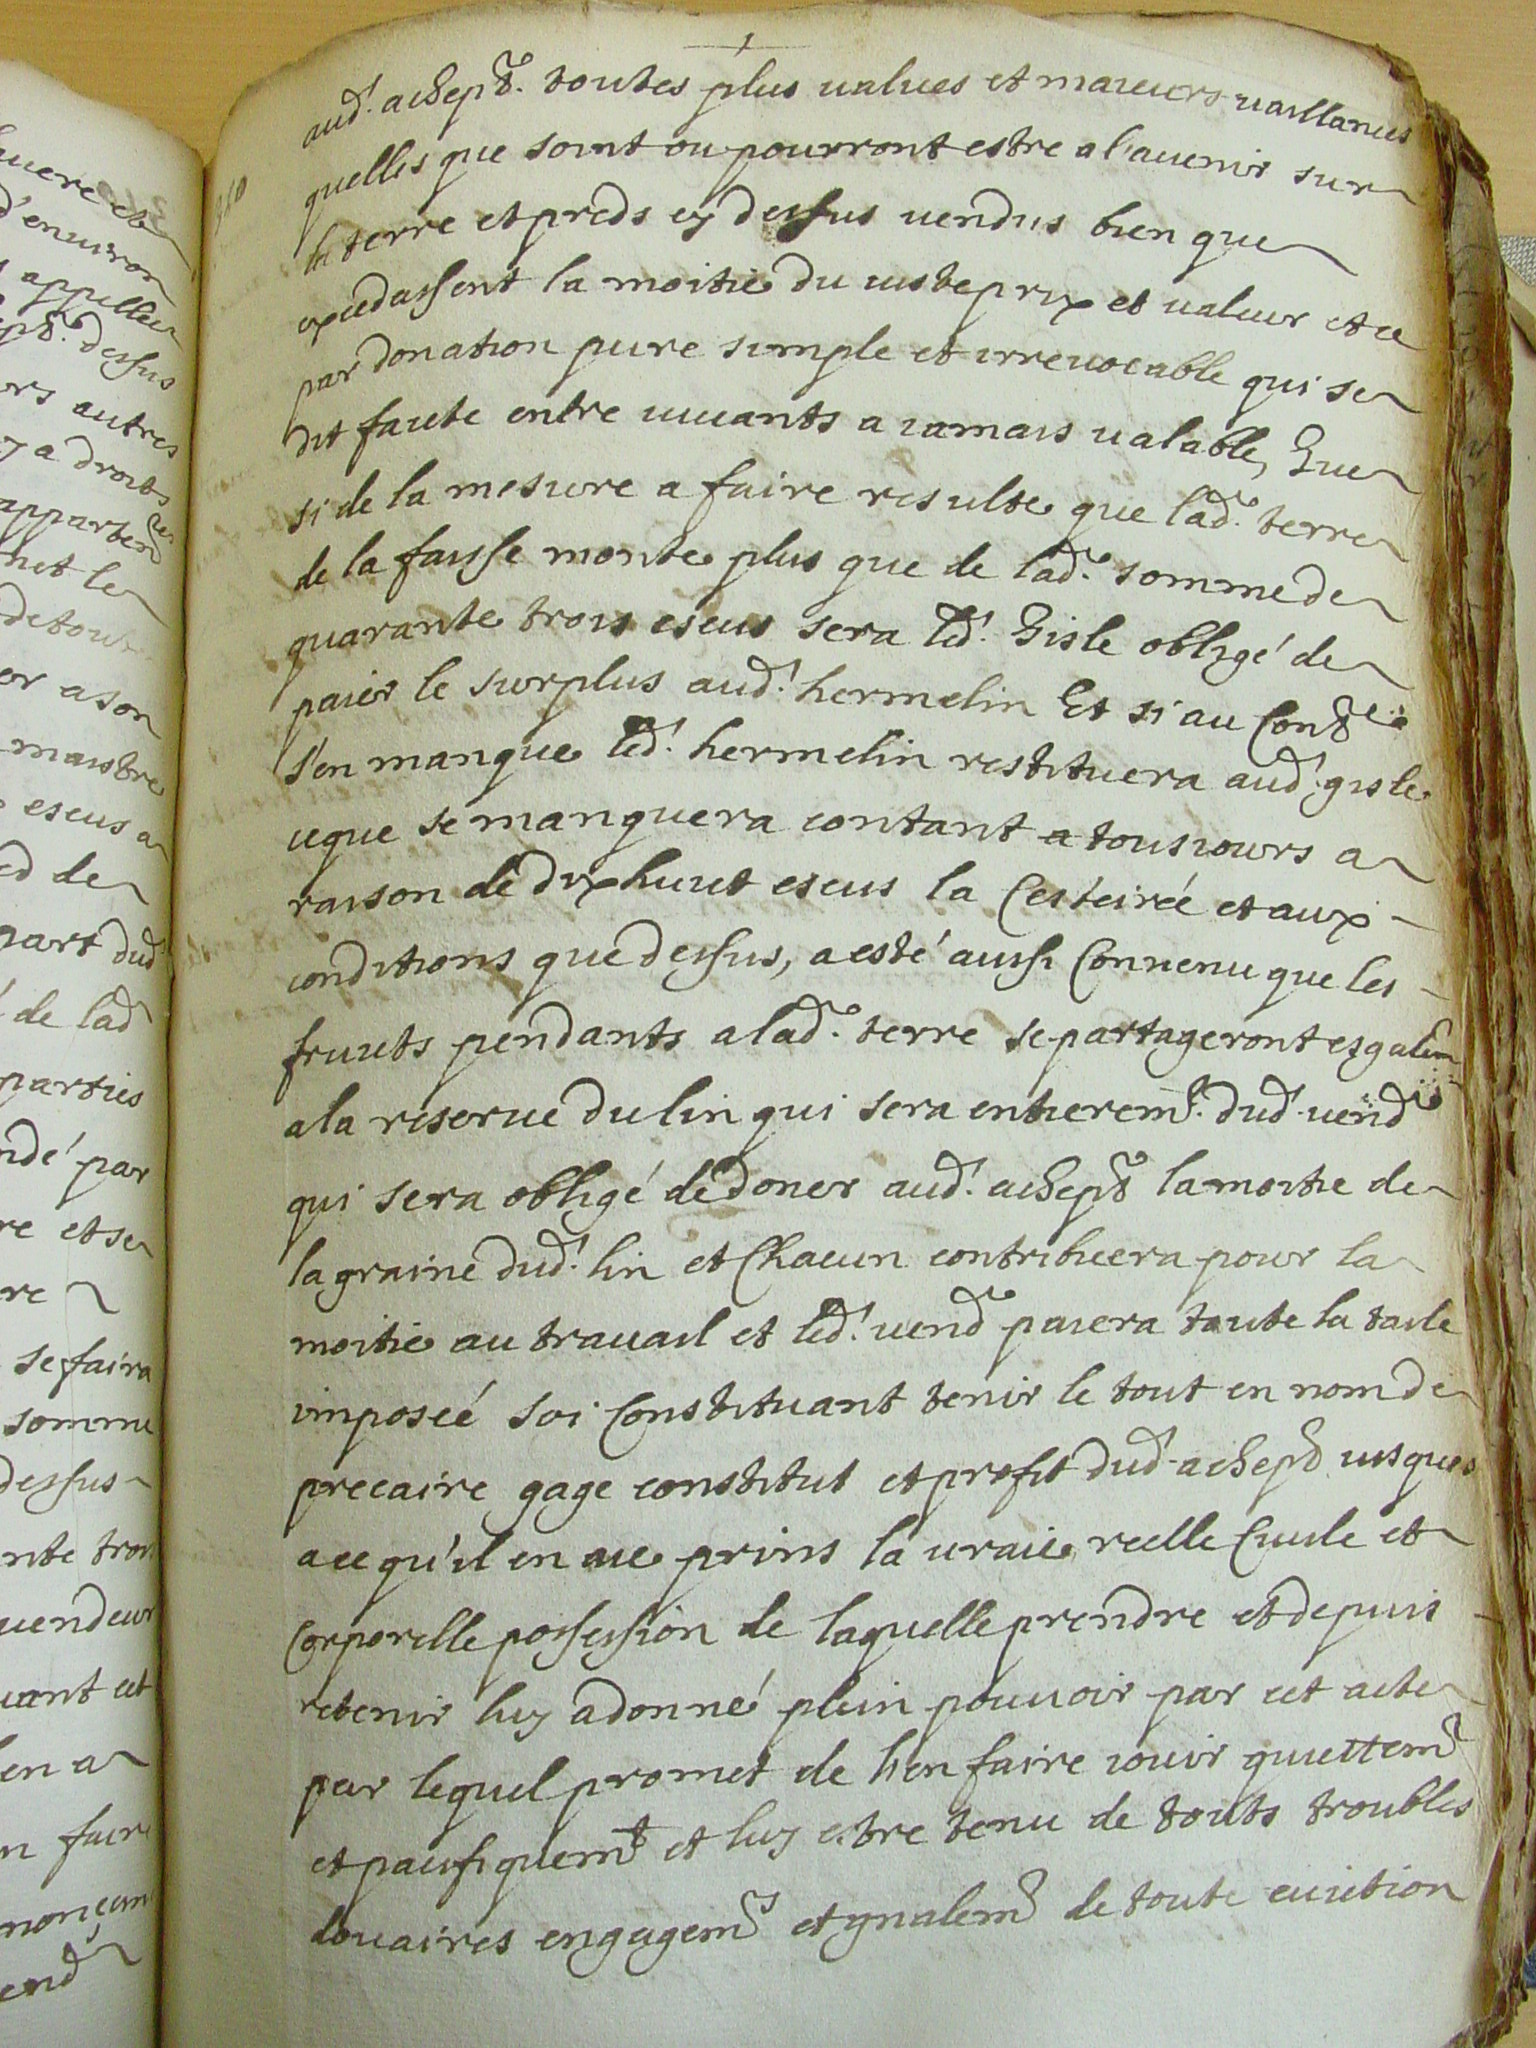 uere et
d'environ
appellee
ept.r dessus
ors autres
y a droits
appartences
met le
detour
or a son
maistre
escus a
ed de
part dud.
de lad
parties
ndé par
re et se
re
se faira
somme
dessus
nte trois
uendeur
uant cet
en a
n faire
nonçan
end
310
aud.t achept.r toutes plus values et maieurs vaillances
quelles que soint ou pourront estre a l'auenir sur
la terre et preds cy dessus uendus bien que
excedassent la moitie du iuste prix et valeur et ce
par donation pure simple et irreuocable qui se
dit faicte entre uiuants a iamais ualable, Que
si de la mesure a faire resulte que lad.e terre
de la faisse monte plus que de lad.e somme de
quarante trois escus sera led.t Gisle obligé de
paier le surplus aud.t hermelin Et si au Contre
s'en manque led.t hermelin restituera aud.t gisle
ce que se manquera contant a tousiours a
raison de dix huict escus la Cesteirée et aux
conditions que dessus, a esté aussi Conuenu que les
fruicts pendants a lad.e terre se partageront esgalem
a la reserue du lin qui sera entierem.t dud.t uendr
qui sera obligé de doner aud.t achept.r la moitie de
la graine dud.t lin et Chacun contribuera pour la
moitie au trauail et led.t uendr paiera toute la taile
imposeé soi Constituant tenir le tout en nom de
precaire gage constitut et profit dud.t achept.r iusques
a ce qu'il en aie prins la uraie reelle Ciuile et
Corporelle possession de laquelle prendre et depuis
retenir luy a donné plein pouuoir par cet acte
par lequel promet de l'en faire iouir quiettem.t
et pacifiquem.t et luy estre tenu de touts troubles
douaires engagem.ts et gnalem.t de toute euiction